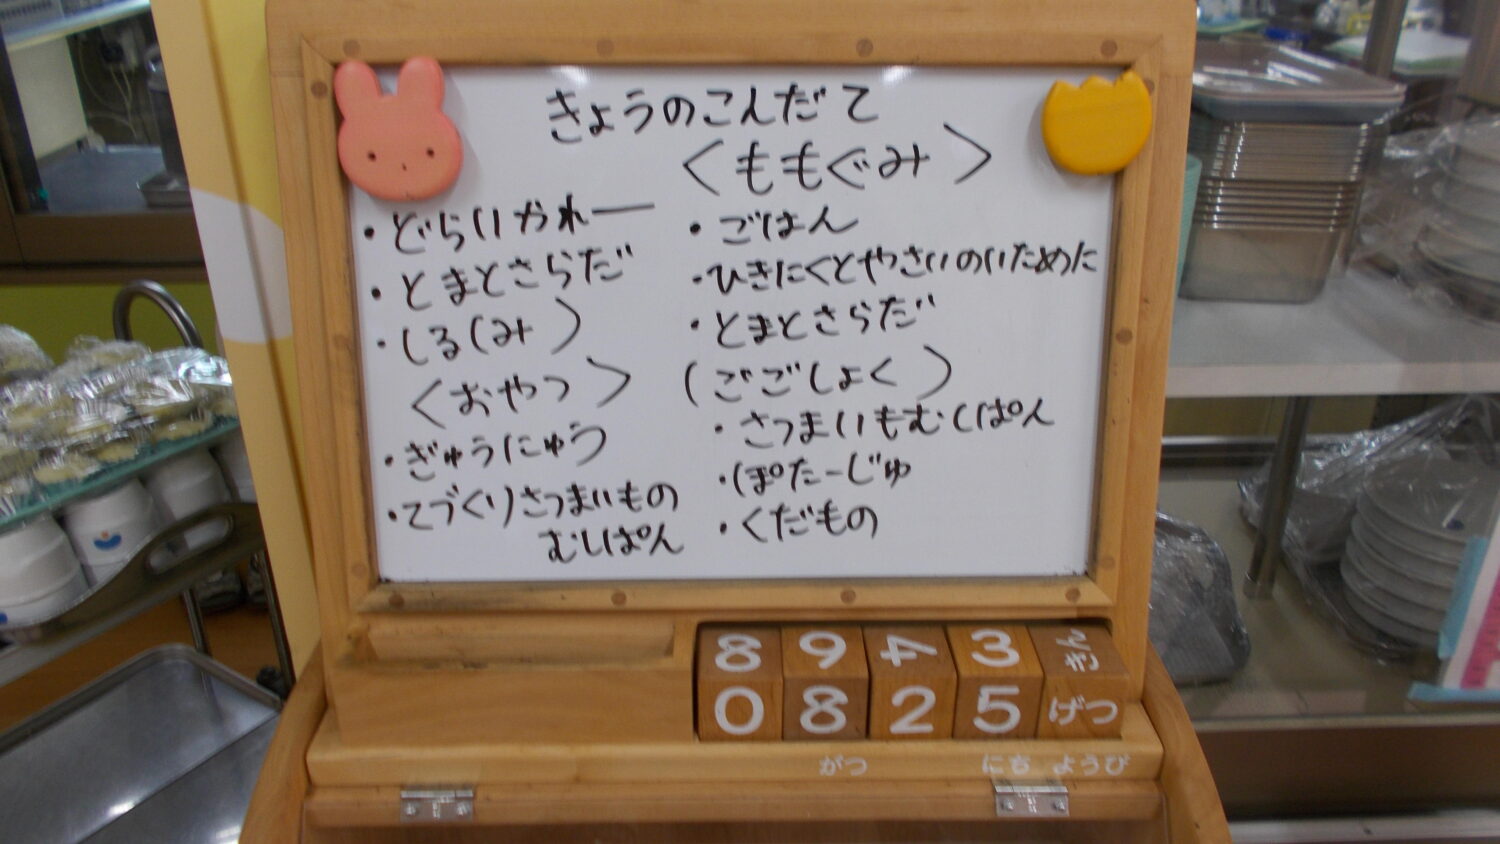 きょうのこんだて
・どらいかれー
・とまとさらだ
・しる(み)
<おやつ>
・ぎゅうにゅう
・てづくりさつまいもの
むしぱん
<ももぐみ>
・ごはん
・ひきにくとやさいのいために
・とまとさらだ
(ごごしょく)
・さつまいもむしぱん
・ぽたーじゅ
・くだもの
8 9 4 3 きん
0 8 2 5 げつ
がつ にち ようび